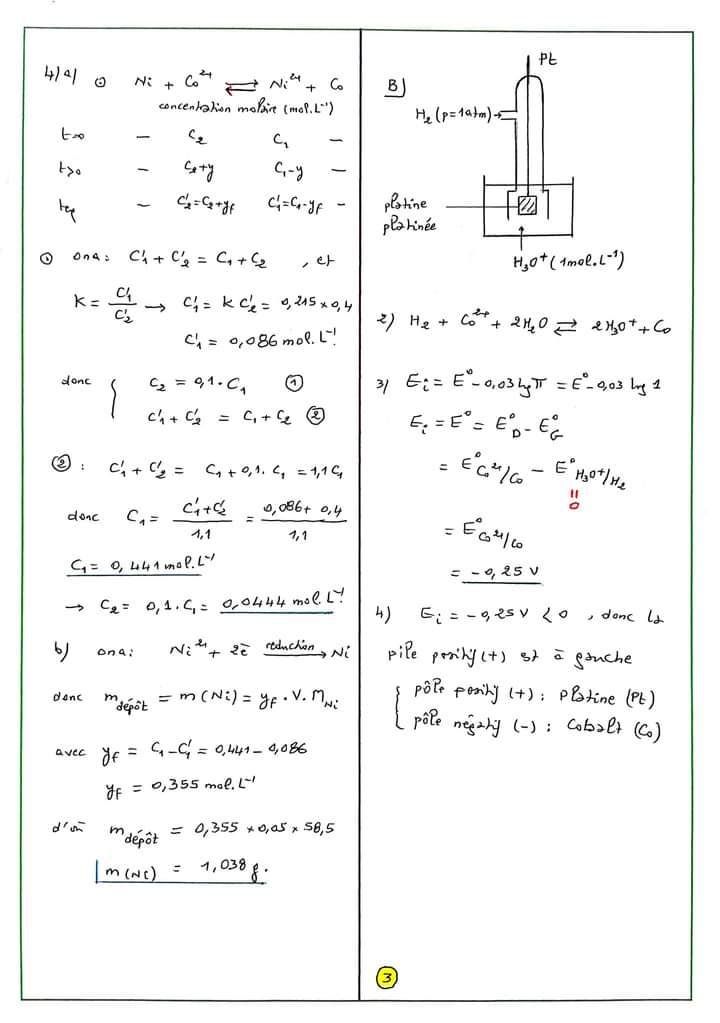 4/a) ⊙ Ni + Co²⁺ ⇌ Ni²⁺ + Co
concentration molaire (mol.L⁻¹)
t=0 — C₂ C₁ —
t>0 — C₂+y C₁-y —
téq — C'₂=C₂+yf C'₁=C₁-yf —
⊙ ona: C'₁ + C'₂ = C₁ + C₂ , et
K = C'₁/C'₂ → C'₁ = K C'₂ = 0,215 × 0,4
C'₁ = 0,086 mol.L⁻¹
donc { C₂ = 0,1.C₁ ①
C'₁ + C'₂ = C₁ + C₂ ②
②: C'₁ + C'₂ = C₁ + 0,1.C₁ = 1,1C₁
donc C₁ = (C'₁+C'₂)/1,1 = (0,086+0,4)/1,1
C₁ = 0,441 mol.L⁻¹
→ C₂ = 0,1.C₁ = 0,0444 mol.L⁻¹
b) ona: Ni²⁺ + 2e⁻ réduction→ Ni
donc m dépôt = m(Ni) = yf . V. MNi
avec yf = C₁ - C'₁ = 0,441 - 0,086
yf = 0,355 mol.L⁻¹
d'où m dépôt = 0,355 × 0,05 × 58,5
m(Ni) = 1,038 g.
B)
Pt
H₂(p=1atm)→
platine
platinée
H₃O⁺(1mol.L⁻¹)
2) H₂ + Co²⁺ + 2H₂O ⇌ 2H₃O⁺ + Co
3) Ei = E° - 0,03 lg π = E° - 0,03 lg 1
Ei = E° = E°D - E°G
= E°Co²⁺/Co - E°H₃O⁺/H₂
=
0
= E°Co²⁺/Co
= -0,25 V
4) Ei = -0,25 V < 0 , donc la
pile positif (+) est à gauche
{ pôle positif (+) : platine (Pt)
pôle négatif (-) : Cobalt (Co)
3